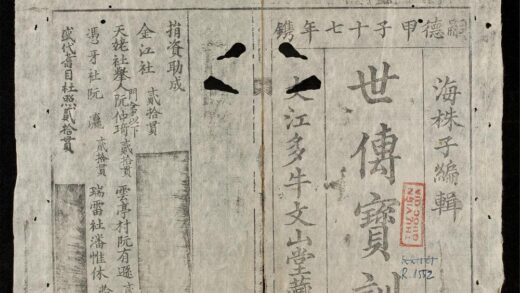 嗣德甲子十七年鐫
海株子編輯
世傳寶訓
大江多牛文山堂藏
捐資助成
金江社 貳拾貫
天姥社舉人阮仲琦 貳拾貫 雲亭村阮有遜
憑牙社阮瀛 貳拾貫 瑞雷社潘惟休
盛代舊目社照貳拾貫